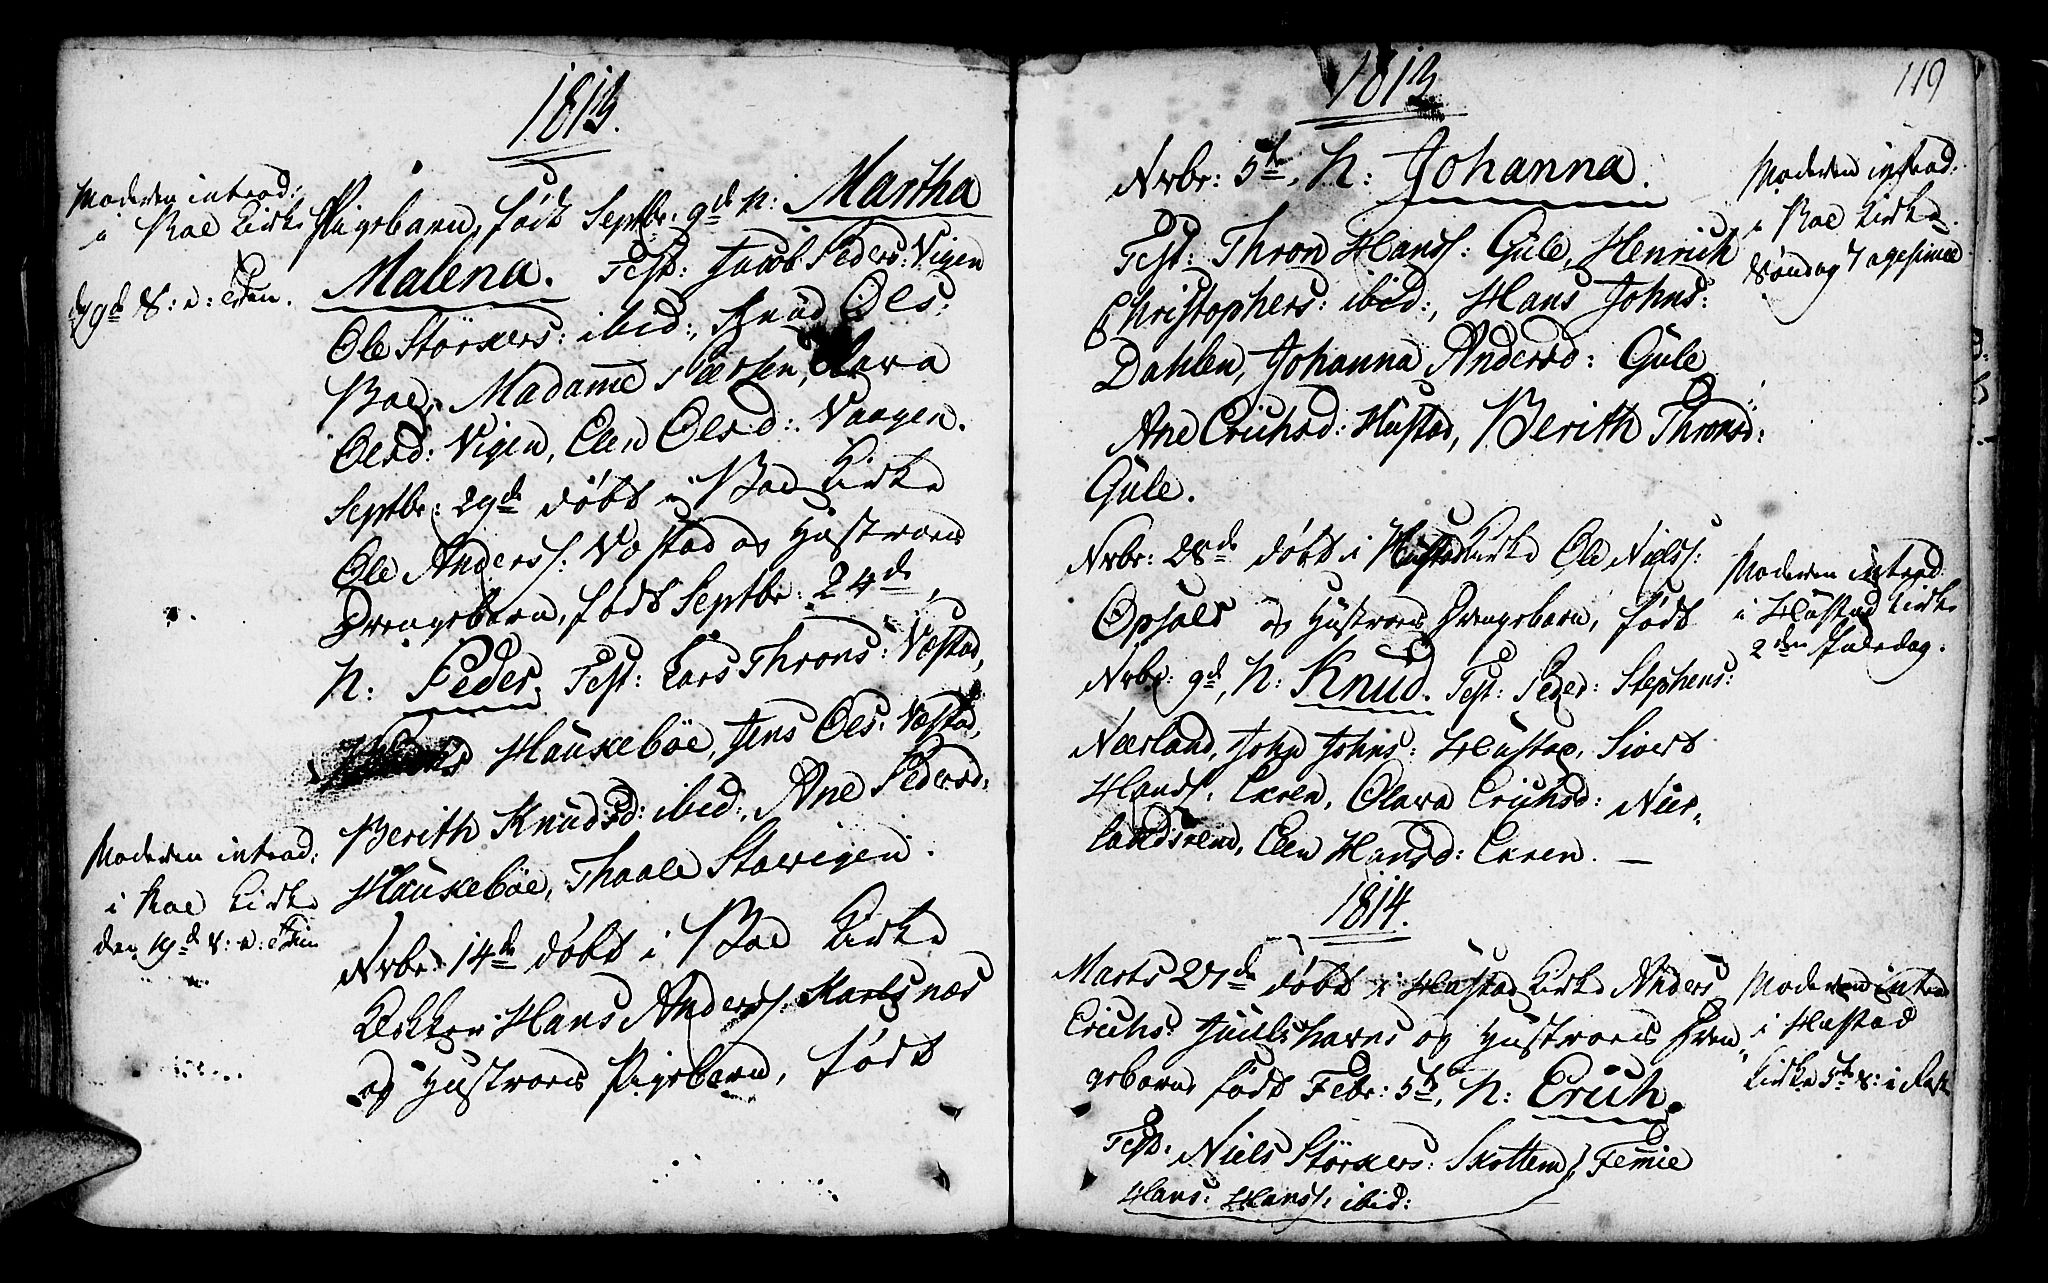 1813.
Moderen introd:
i Roe Kirke
d. 19d S: e: Tren.
Pigebarn, født Septbr: 9d N: Martha
Malena. Test: Jacob Peders: Vigen
Ole Størkers: ibid:, Knud Ols:
Roe, Madame Peersen, Olava
Olsd: Vigen, Elen Olsd: Vaagen.
Septbr: 29d døbt i Roe Kirke
Ole Anderss: Vastad og Hustroes
Drengebarn, født Septbr: 24de,
N: Peder. Test: Lars Throns: Vastad,
Haukebøe, Jens Ols: Vastad,
Berith Knudsd: ibid:, Ane Pedersd:
Haukebøe, Thaale Stavigen.
Moderen introd:
i Roe Kirke
den 19d S: e: Trin
Nvbr: 14de døbt i Roe Kirke
Klokker Hans Anderss: Karlsnæs
og Hustroes Pigebarn, født
1813
119
Nvbr: 5te, N: Johanna.
Test: Thron Hanss: Gule, Henrich
Christophers: ibid:, Hans Johns:
Dahlen, Johanna Andersd: Gule
Ane Erichsd: Hustad, Berith Thronsd:
Gule.
Moderen introd:
i Roe Kirke
Søndag 7agesimæ
Nvbr: 28de døbt i Hustad Kirke Ole Nielss:
Opsals og Hustroes Drengebarn, født
Nvbr: 9d, N: Knud. Test: Peder: Stephens:
Nærland, John Johns: Hustad, Sivert
Hanss: Exren, Olava Erichsd: Nær-
landsrem, Elen Hansd: Exren. —
Moderen introd:
i Hustad Kirke
2den Juledag.
1814.
Marts 27de døbt i Hustad Kirke Anders
Erichs: Juulshavns og Hustroes Dren-
gebarn født Febr: 5te, N: Erich.
Test: Niels Størkers: Skottem, Femie
Hans: Hanss: ibid:
Moderen intro
i Hustad
Kirke 5te S: i Fast